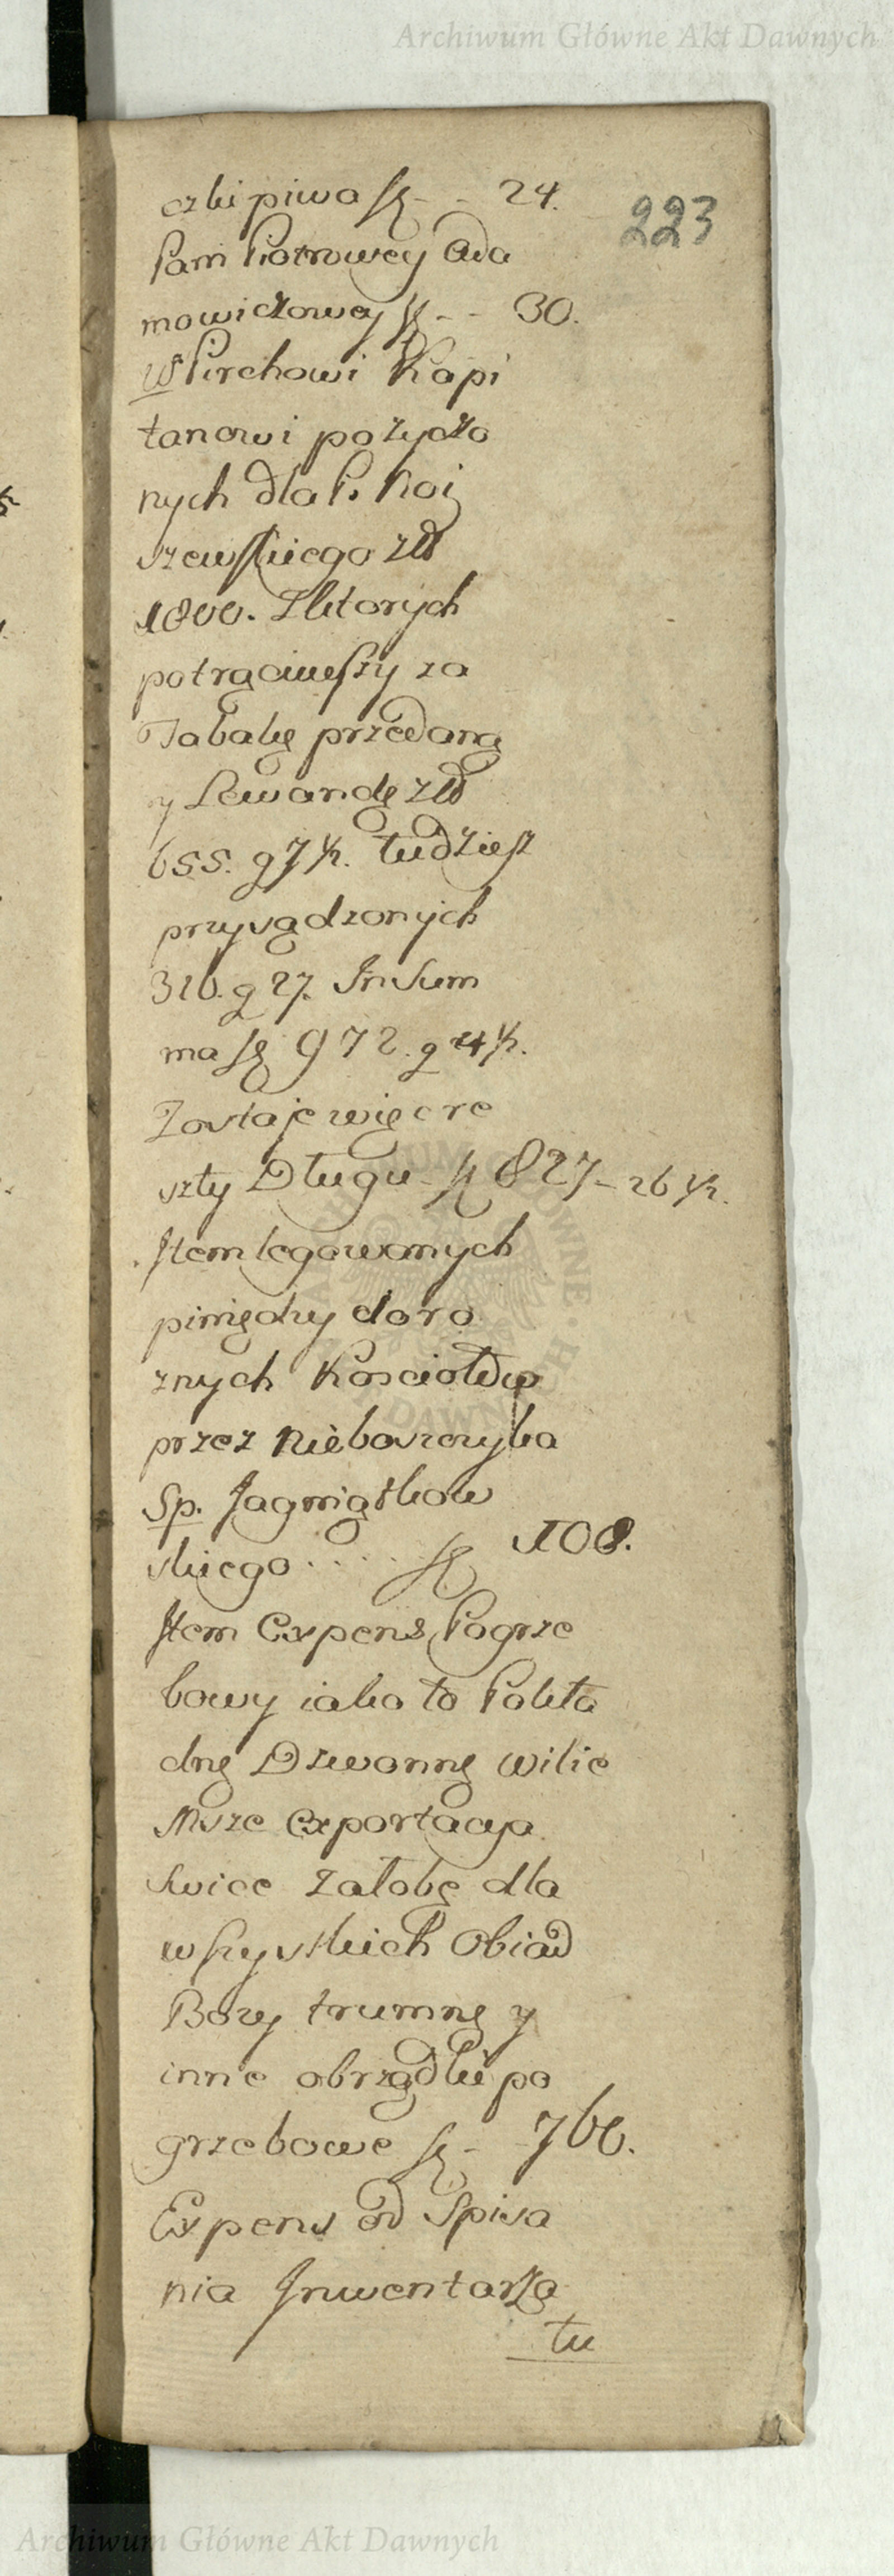 Archiwum Główne Akt Dawnych
223
czki piwa fl - - 24.
Pani Piotrowey Ada
mowiczowey fl - - 30.
W Pirchowi Kapi
tanowi pożyczo
nych dla P. Koi
szewskiego zło
1800. Z ktorych
potrąciwszy za
Tabakę przedaną
y Lewandę zło
655. g 7 ½. tudziesz
przysądzonych
316. g 27. In Sum
ma fl 972. g 4 ½.
Zostaje więc re
szty Długu - fl 827 - 26 ½.
Item legowanych
pieniędzy do ro
znych Kosciołow
przez Nieboszczyka
Sp. Jagniątkow
skiego . . . . fl 108.
Item Expens Pogrze
bowy iako to Pokła
dne Dzwonne Wilie
Msze Exportacya
Swice Załobę dla
wszystkich Obiad
Bozy trumnę y
inne obrządki po
grzebowe fl - - 766.
Expens od Spisa
nia Inwentarza
tu
Archiwum Główne Akt Dawnych